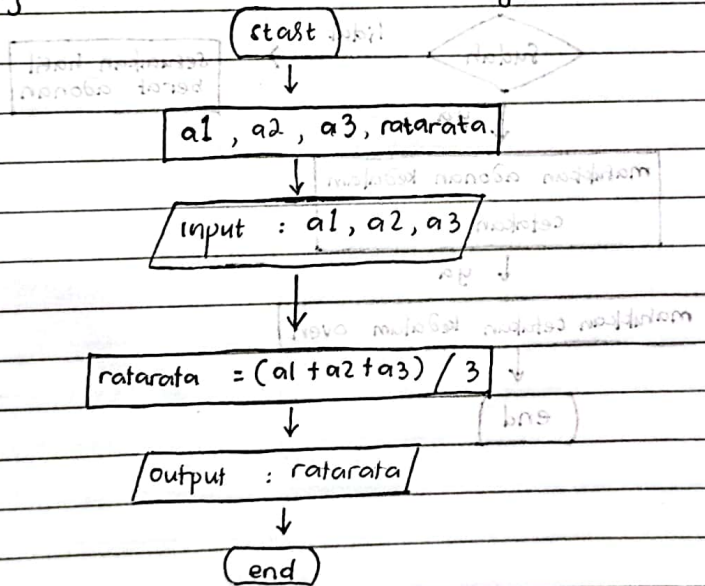 start
a1, a2, a3, ratarata.
input : a1, a2, a3
ratarata = (a1 + a2 + a3) / 3
output : ratarata
end